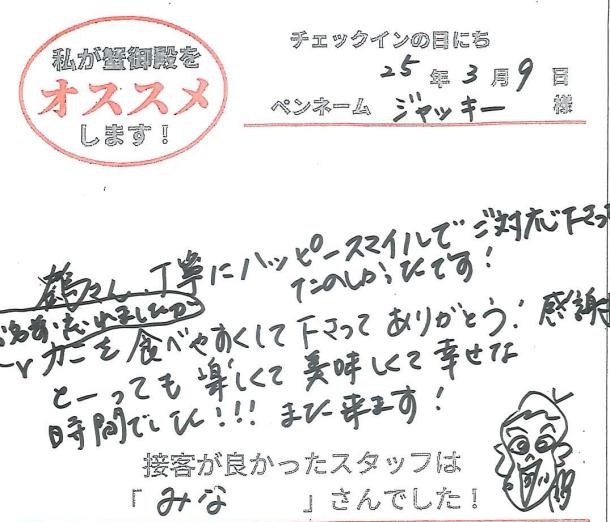 私が蟹御殿を
オススメ
します！
チェックインの日にち
25年3月9日
ペンネーム ジャッキー 様
鶴さん、丁寧にハッピースマイルでご対応下さって
たのしかったです！
お名前忘れましたが
カニを食べやすくして下さってありがとう！感謝
とーっても楽しくて美味しくて幸せな
時間でした!!! また来ます！
接客が良かったスタッフは
「みな　」さんでした！